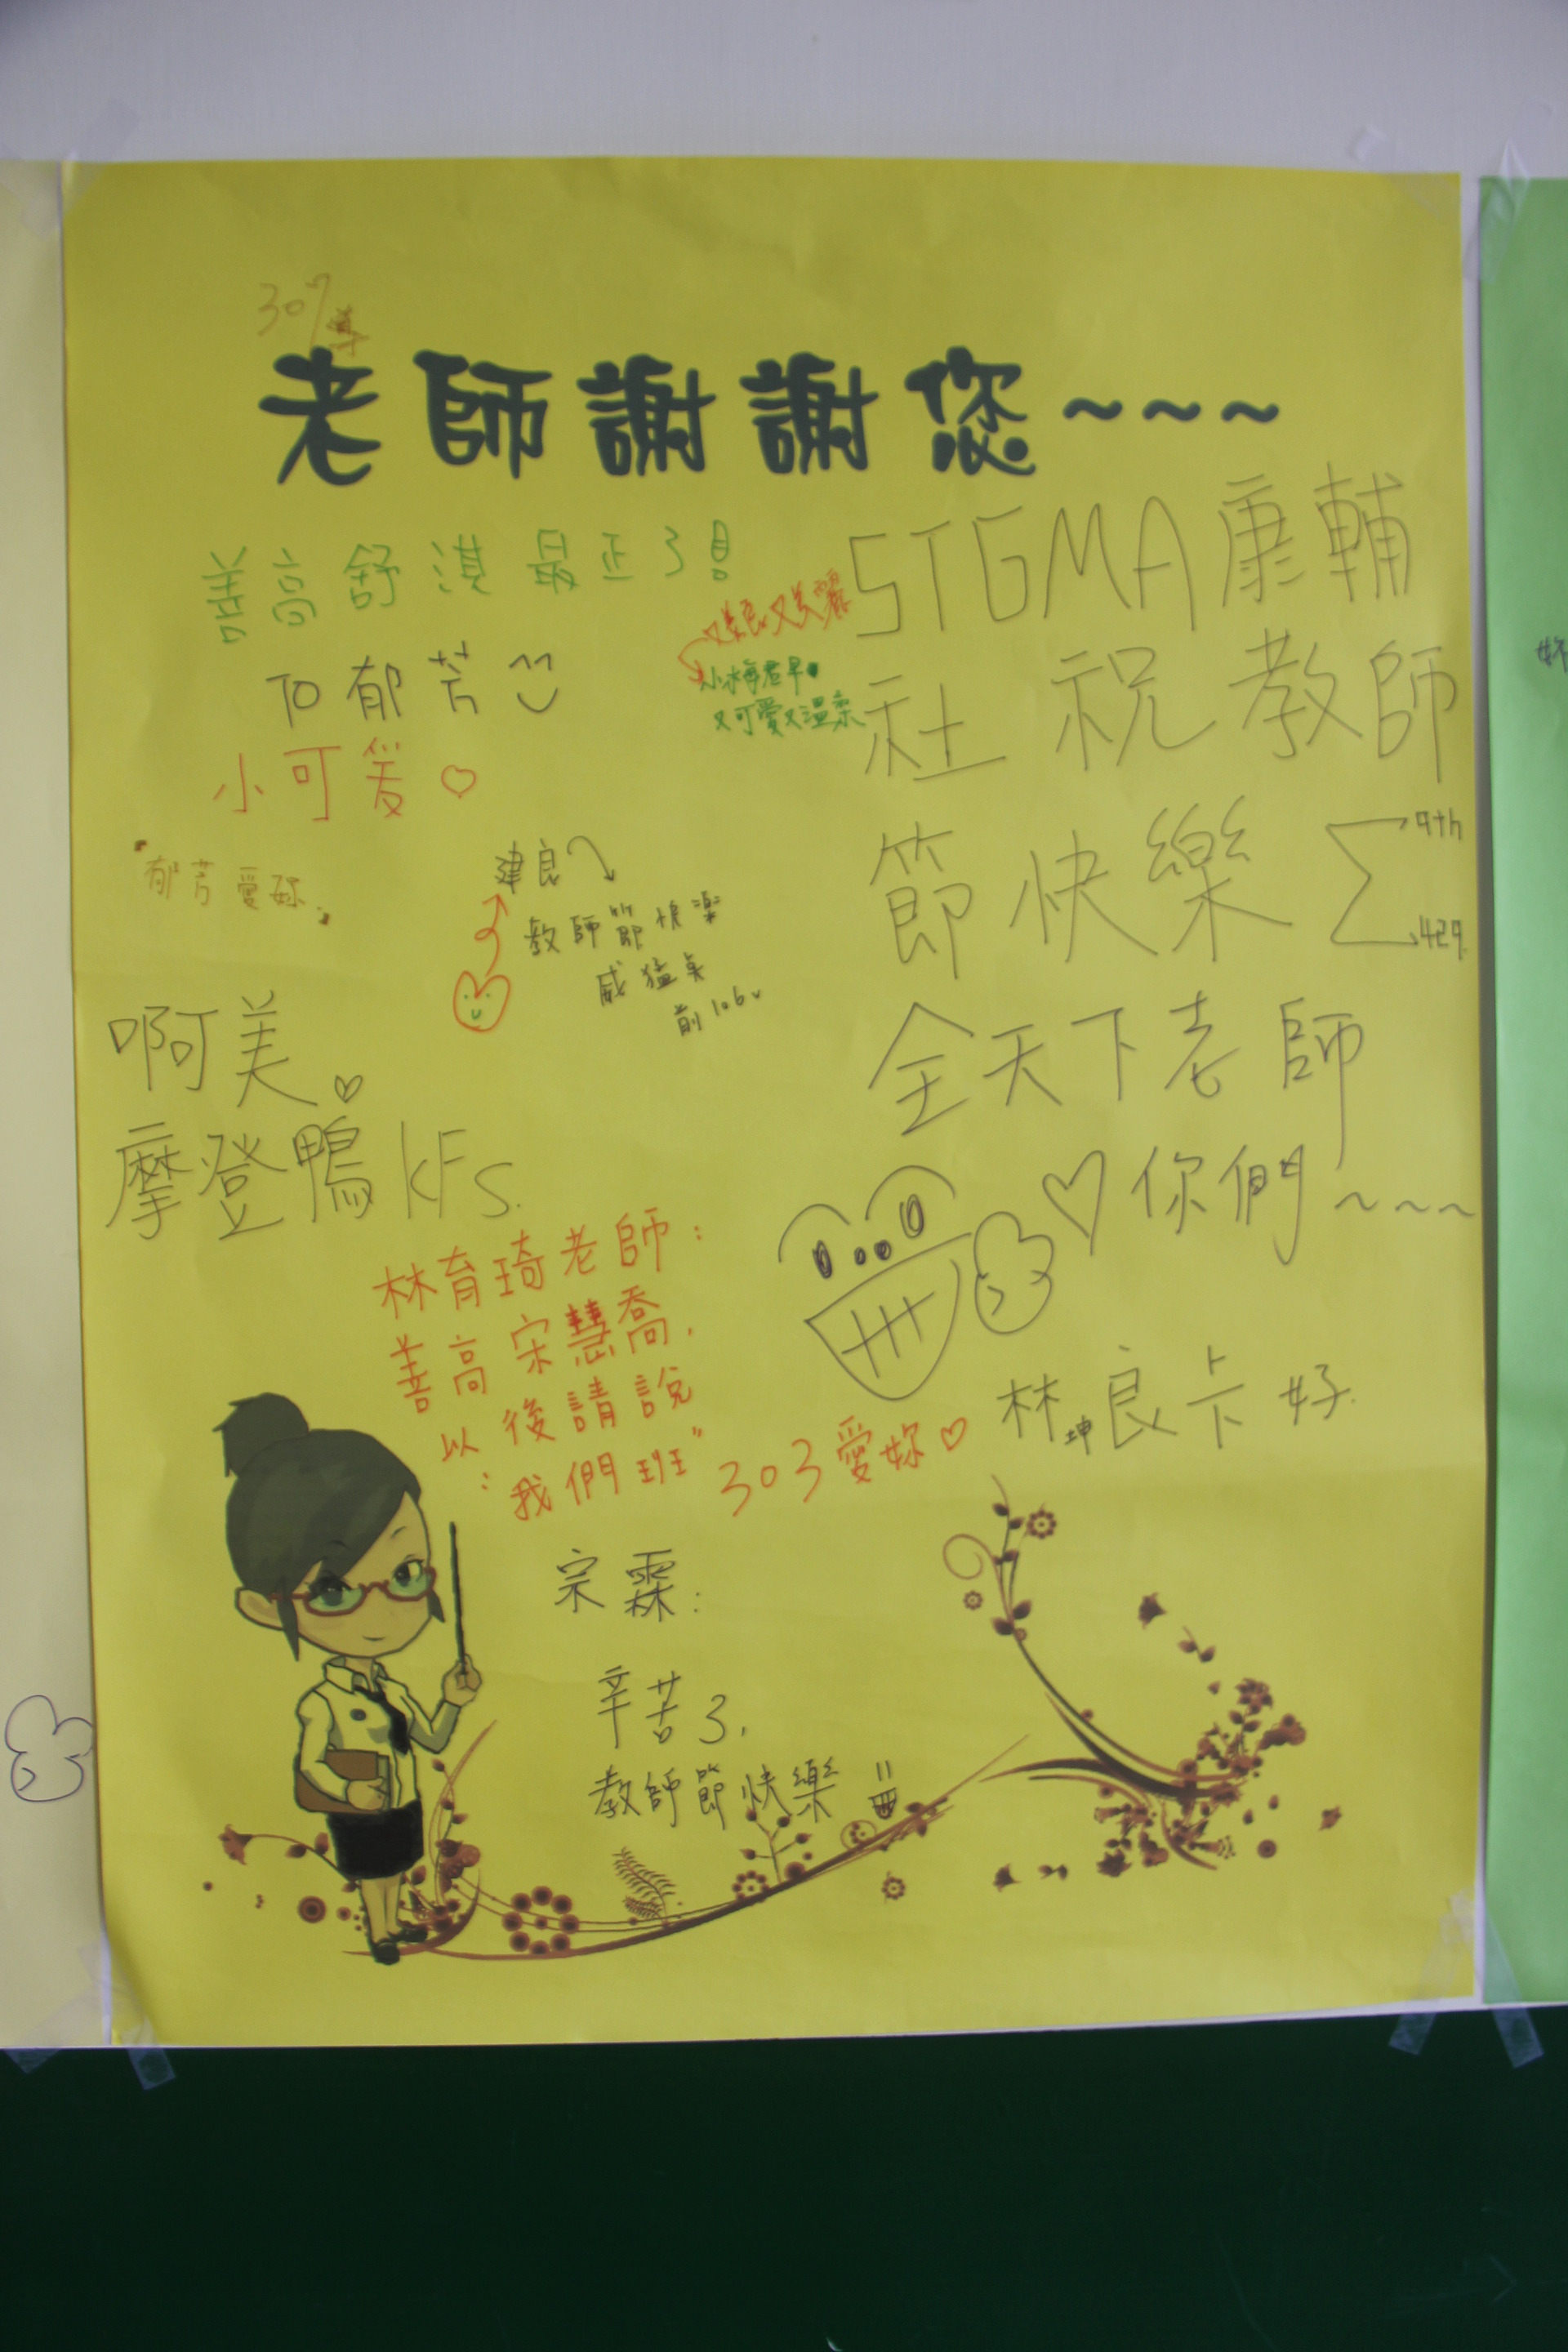 307導
老師謝謝您~~~
善高舒淇最正了!
TO郁芳
小可爱♡
"郁芳愛妳"
又善良又美麗
小梅老早
又可愛又溫柔
STGMA康輔
社祝教師
節快樂
9th
429
全天下老師
♡你們~~~
建良
教師節快樂
威猛
前
啊美♡
摩登鴨KFS.
林育琦老師:
善高宋慧喬,
以後請說
"我們班"
303愛妳♡
林坤良卡好.
宗霖:
辛苦了,
教師節快樂
妳